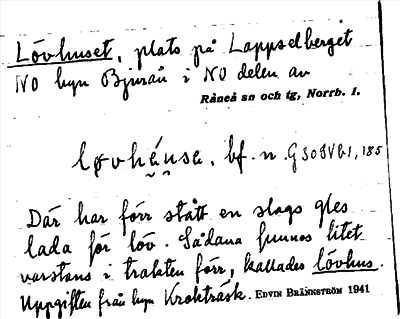 Lövhuset, plats på Lappselberget
NO byn Bjurån i NO delen av
Råneå sn och tg, Norrb. l.
løvhų́usə, bf. n.
Där har förr stått en slags gles
lada för löv. Sådana funnos litet
varstans i trakten förr, kallades lövhus.
Uppgiften från byn Krokträsk. EDVIN BRÄNNSTRÖM 1941